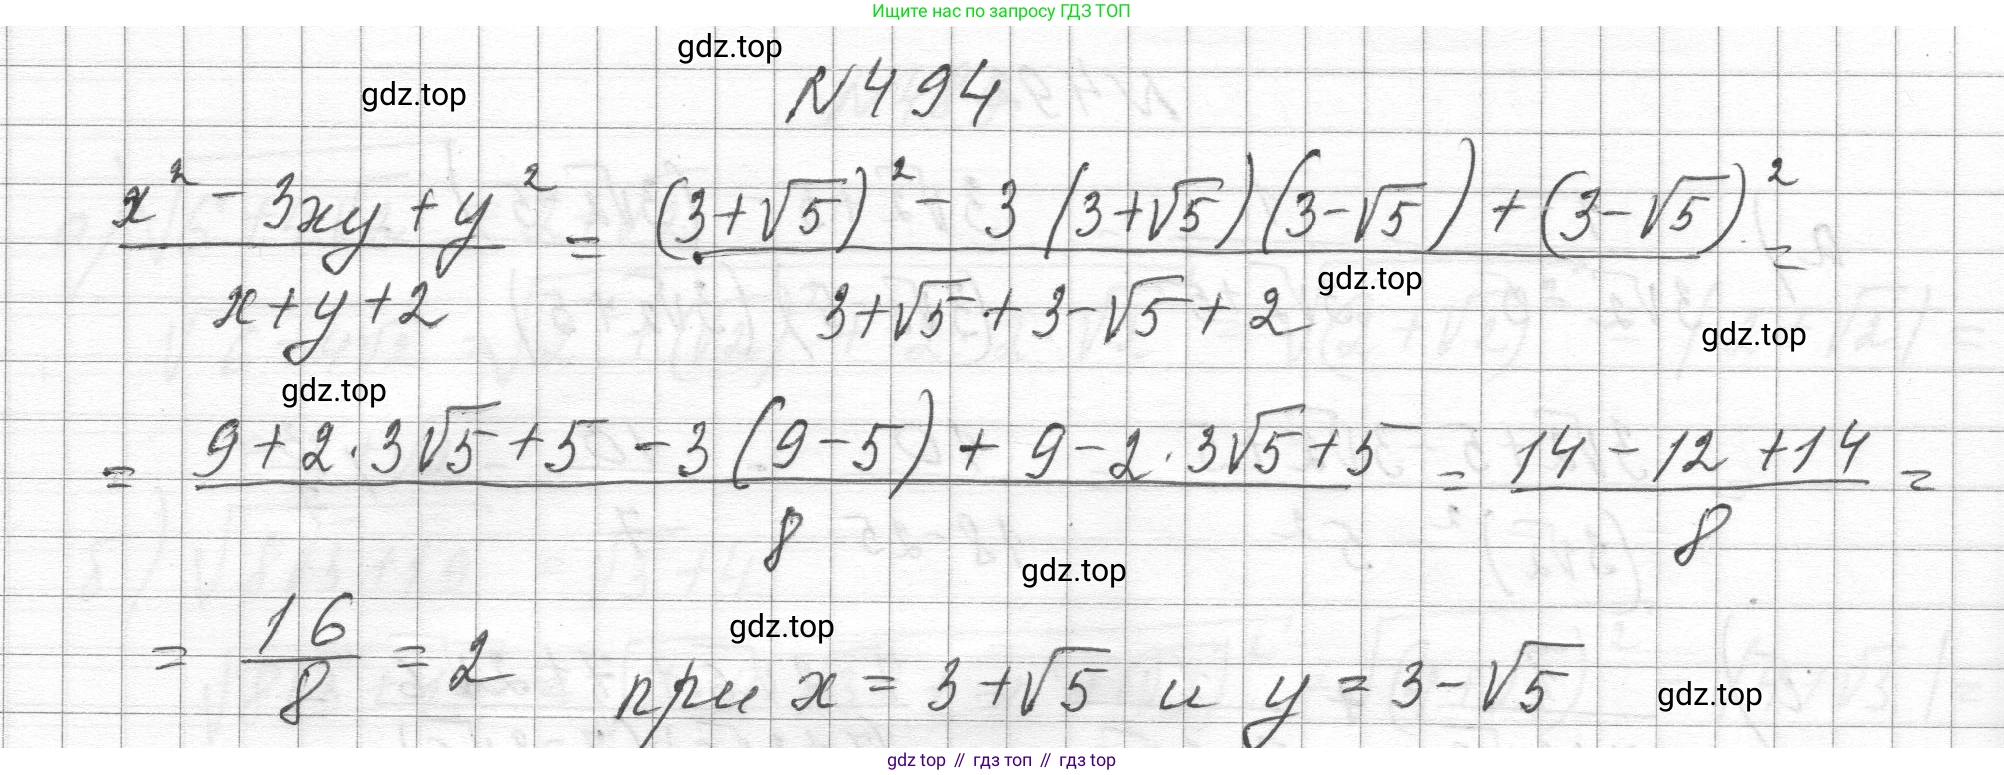 Ищите нас по запросу ГДЗ ТОП
gdz.top
N 494
gdz.top
x² - 3xy + y² / x + y + 2 = (3+√5)² - 3(3+√5)(3-√5) + (3-√5)² / 3+√5 + 3-√5 + 2 =
gdz.top
gdz.top
gdz.top
= 9 + 2·3√5 + 5 - 3(9-5) + 9 - 2·3√5 + 5 / 8 = 14 - 12 + 14 / 8 =
gdz.top
gdz.top
= 16 / 8 = 2 при x = 3+√5 и y = 3-√5
gdz.top
gdz top // гдз топ // gdz top